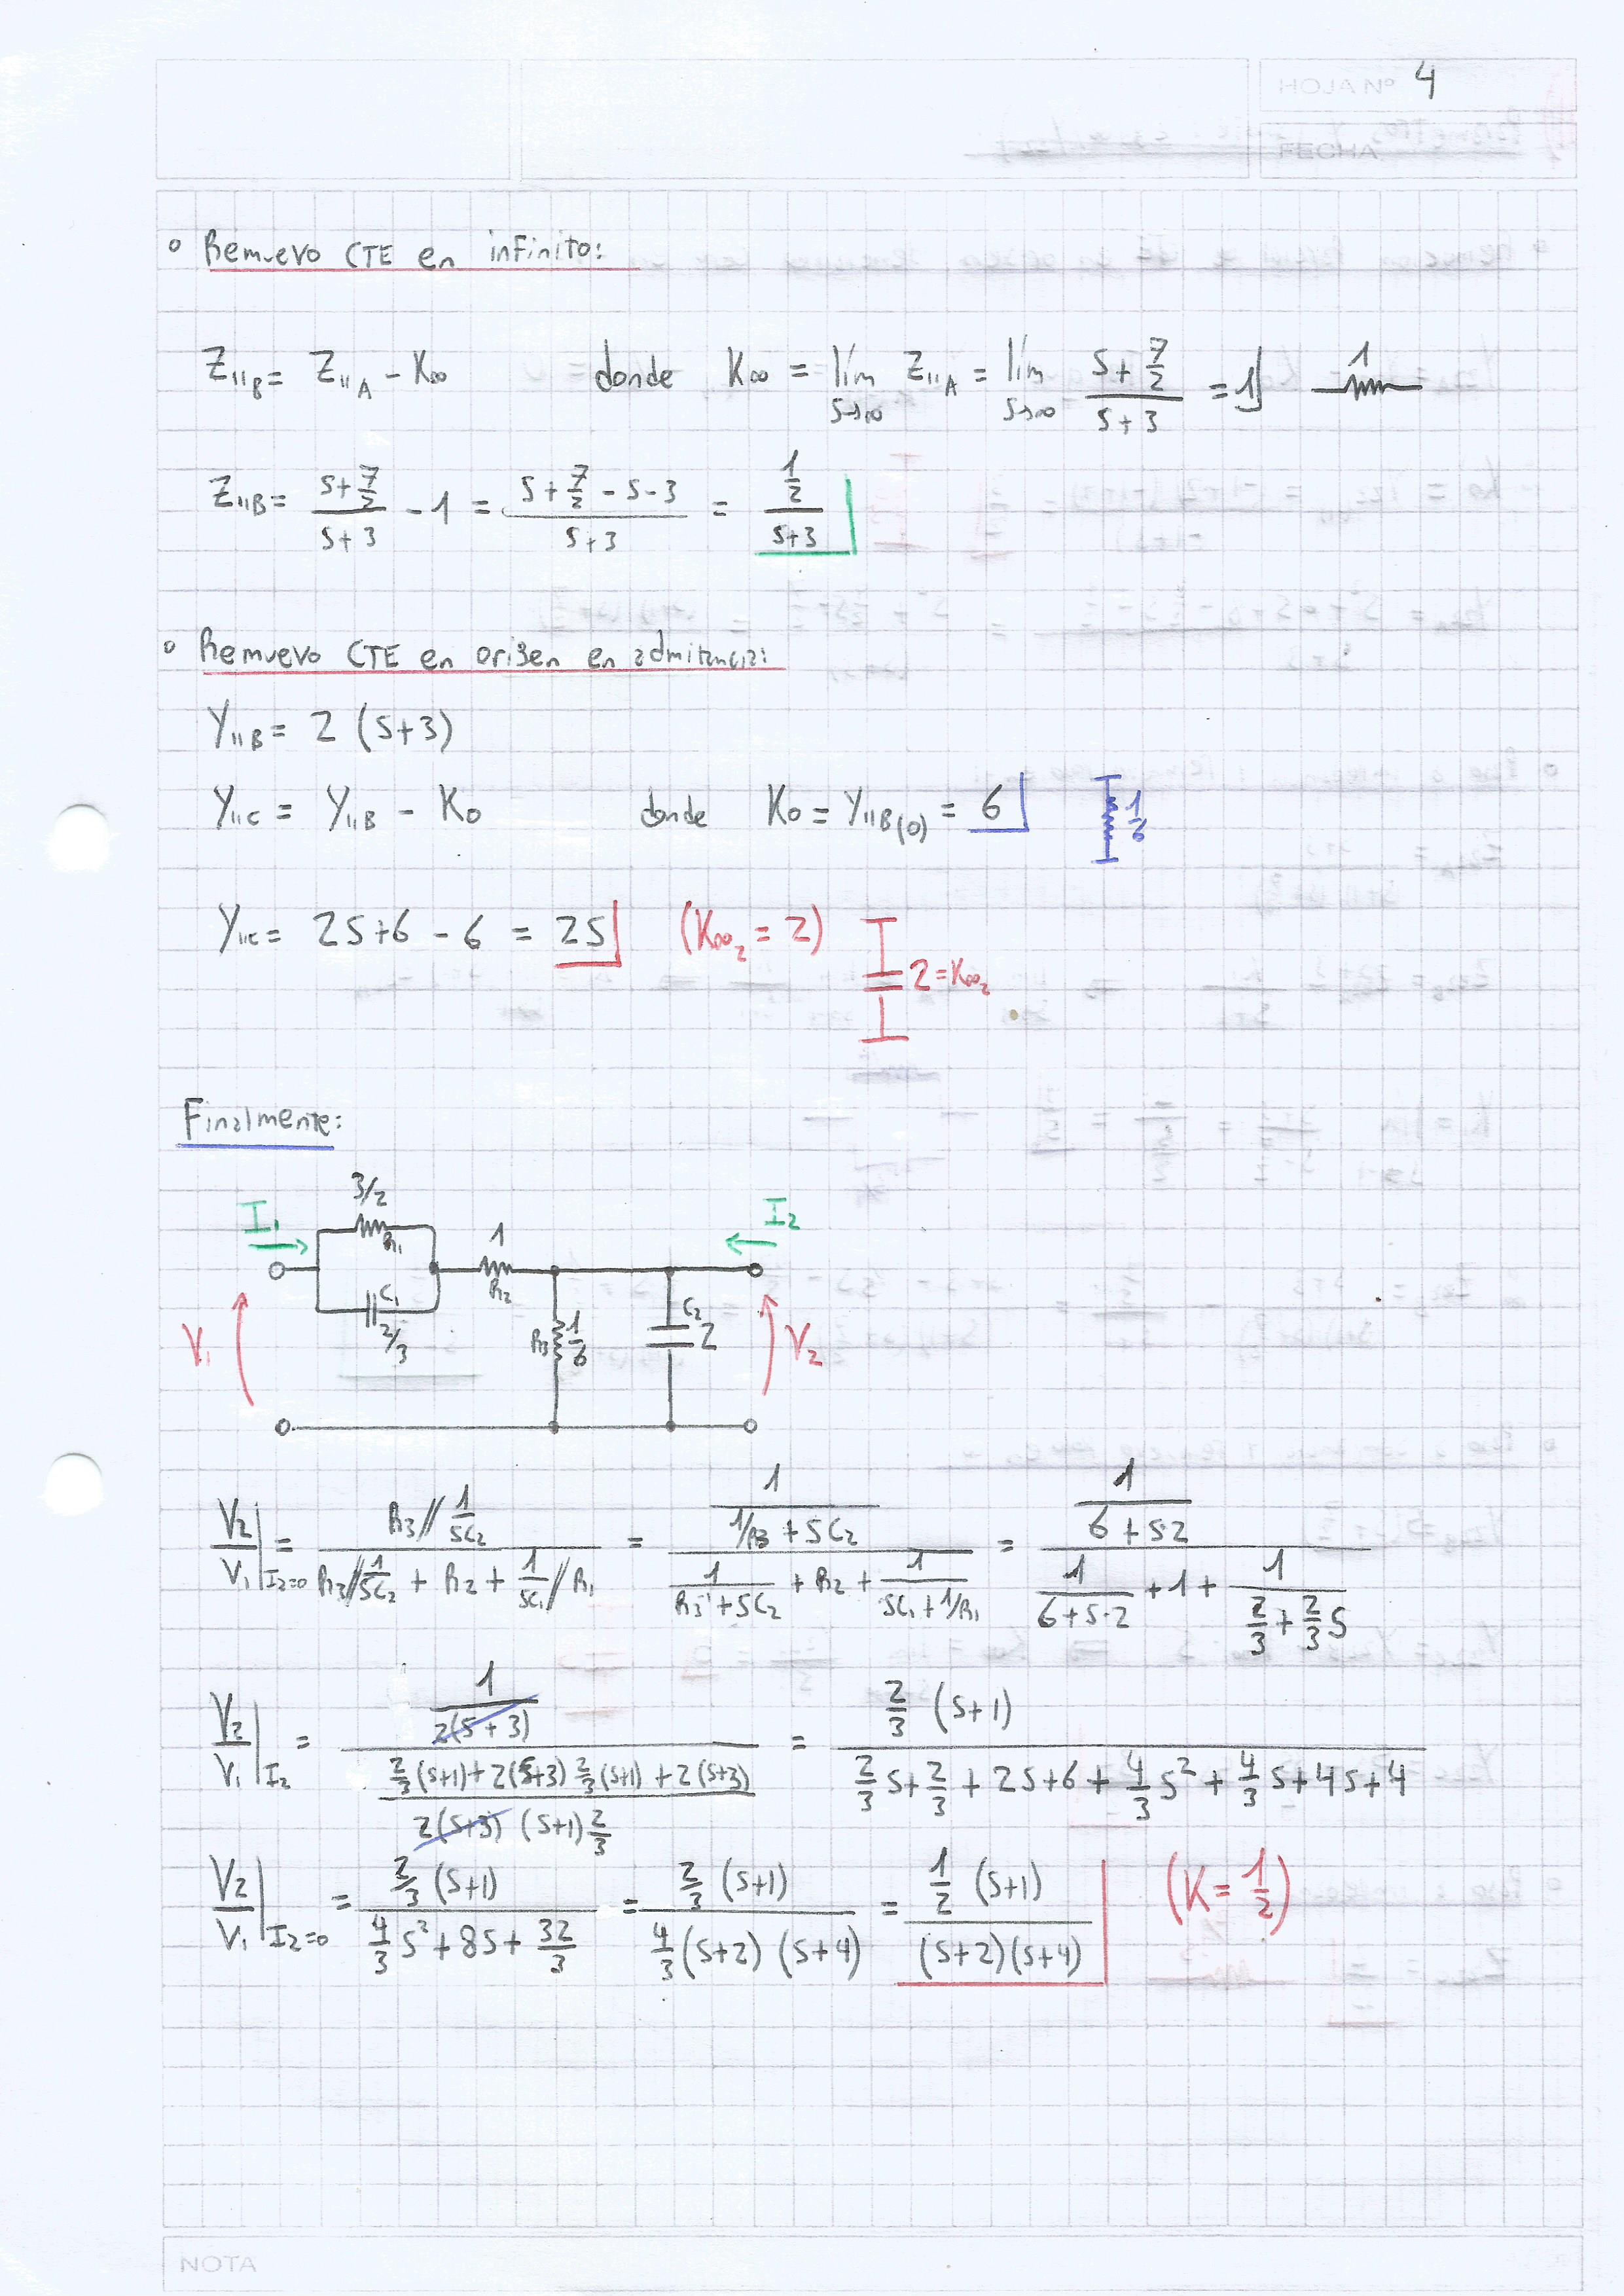 HOJA Nº 4
FECHA
° Remuevo CTE en infinito:
Z₁₁B = Z₁₁A - K∞ donde K∞ = lím s→∞ Z₁₁A = lím s→∞ (s + 7/2)/(s + 3) = 1 1
Z₁₁B = (s + 7/2)/(s + 3) - 1 = (s + 7/2 - s - 3)/(s + 3) = (1/2)/(s + 3)
° Remuevo CTE en origen en admitancia:
Y₁₁B = 2 (s+3)
Y₁₁C = Y₁₁B - K0 donde K0 = Y₁₁B(0) = 6 1/6
Y₁₁C = 2s+6 - 6 = 2s (K∞₂ = 2) 2 = K∞₂
Finalmente:
I₁ 3/2 R₁ 1 R₂ I₂
C₁ 2/3
V₁ R3 1/6 C₂ 2 V₂
V₂/V₁|I₂=0 = (R3 // 1/sC₂)/(R3 // 1/sC₂ + R₂ + 1/sC₁ // R₁) = (1/(1/R3 + sC₂))/(1/(R3⁻¹ + sC₂) + R₂ + 1/(sC₁ + 1/R₁)) = (1/(6 + s·2))/(1/(6 + s·2) + 1 + 1/(2/3 + 2/3 s))
V₂/V₁|I₂ = (1/(2(s+3)))/((2/3 (s+1) + 2(s+3) 2/3 (s+1) + 2(s+3))/(2(s+3) (s+1) 2/3)) = (2/3 (s+1))/(2/3 s + 2/3 + 2s + 6 + 4/3 s² + 4/3 s + 4s + 4)
V₂/V₁|I₂=0 = (2/3 (s+1))/(4/3 s² + 8s + 32/3) = (2/3 (s+1))/(4/3 (s+2) (s+4)) = (1/2 (s+1))/((s+2)(s+4)) (K = 1/2)
NOTA